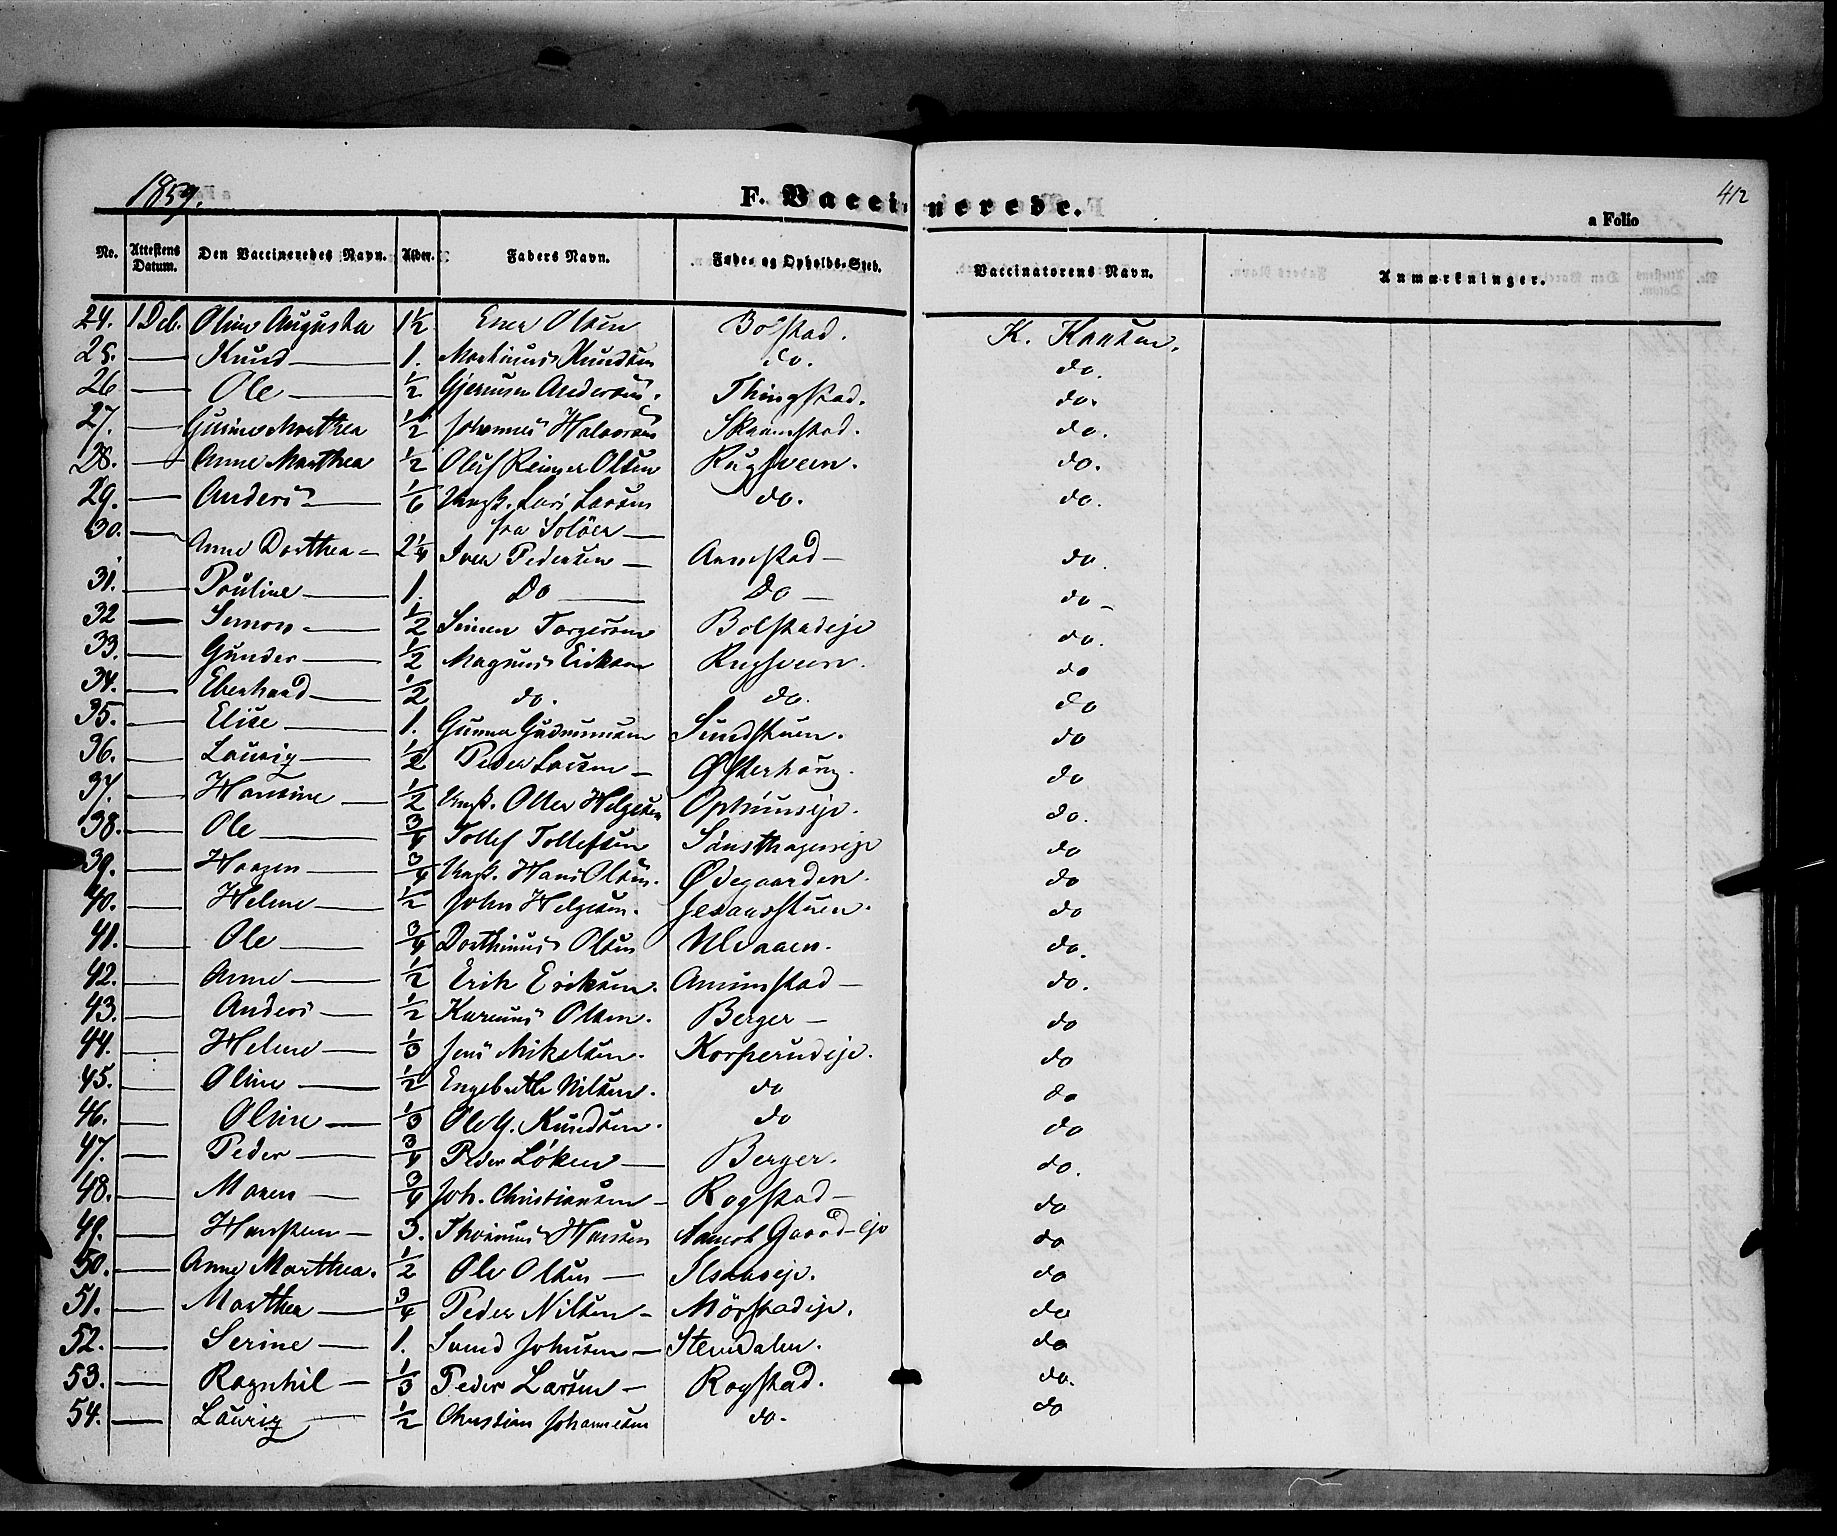 1859.
F. Vaccinerede.
412
a Folio
No. Attestens Datum. Den Vaccineredes Navn. Alder. Faders Navn. Føde- og Opholds-Sted. Vaccinatorens Navn. Anmærkninger.
24. 1 Dcb. Oline Augusta 1½ Ener Olsen Bolstad. K. Knutsen.
25. — Knud — 1. Martinus Knudsen do. do.
26 — Ole — ½ Andersen. Thingstad. do.
27. — Marthea ½ Johannes Halvorsen Skramstad. do.
28. — Anne Marthea ½ Oluf Reinger Olsen Rugsveen. do.
29. — Anders — 1/6 Ungk. Lars Larsen do. do.
fra Soløer —
30. — Anne Dorthea — 2¼ Iver Pedersen — Arnestad — do.
31. — Pauline — 1. Do — Do — do —
32 — Simon — ½ Simen Torgersen Bolstadeje do.
33. — Gunder — ½ Magnus Eriksen Rugsveen. do
34. — Eberhard — ½ do. do. do
35. — Elise — 1. Gunner Gudmunsen Sundstuen. do
36. — Lauritz — ½ Peder Larsen — Østerhaug. do
37. — Hansine — ½ Ungk. Otter Helgesen Ophuuseje. do.
38. — Ole — ¾ Tollef Tollefsen Sønsthageneje do
39. — Haagen — ¾ Ungk. Hans Olsen. Ødegaarden. do
40. — Helene — ½ John Helgesen. do
41. — Ole — ¾ Dorthinus Olsen Ulvaaen. do.
42. — Anne — ½ Erik Eriksen. Amunstad — do.
43. — Anders — ½ Karenus Olsen. Berger — do
44. — Helene — 1/3 Jens Mikelsen. Korperudeje. do
45. — Oline — ½ Engebreth Nilsen. do do
46. — Oline — 1/3 Ole G. Knudsen. do do
47. — Peder — ¾ Peder Løken — Berger. do.
48. — Maren — ¾ Joh. Christiansen — Rogstad — do
49. — Hansteen — 3. Thorinus Hansen Aamot Gaard-eje do
50. — Anne Marthea. ½ Ole Olsen — Ilsaaseje. do
51. — Marthea — ¾ Peder Nilsen — Mørstadeje. do
52. — Serine — 1. Svend Johnsen — Stendalen. do
53. — Ragnhil — 1/3 Peder Larsen — Rogstad. do.
54. — Lauritz — ½ Christian Johannesen do. do